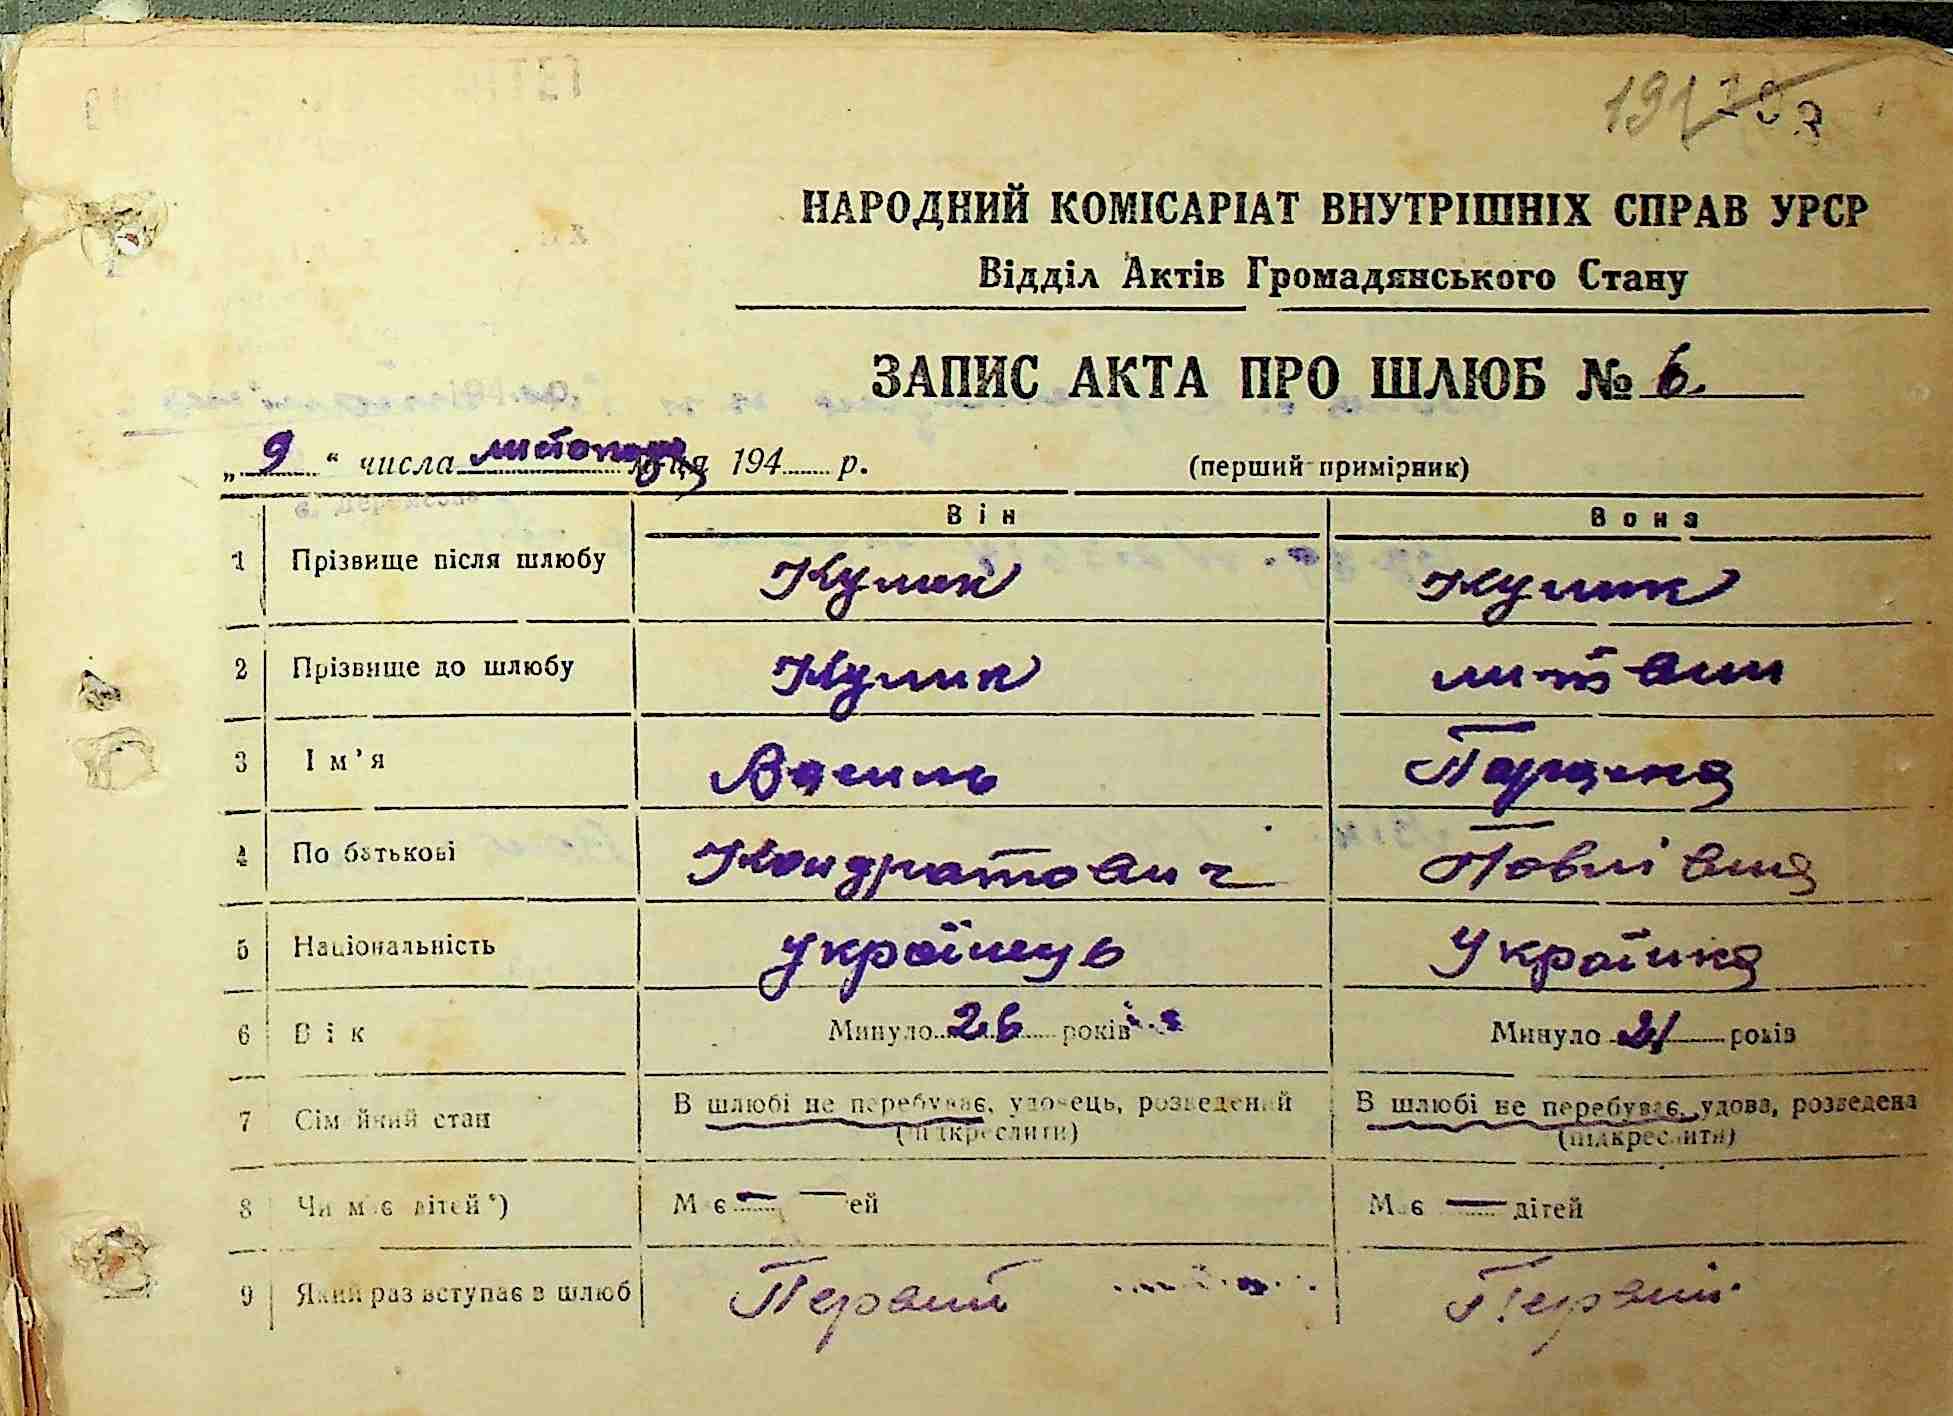 НАРОДНИЙ КОМІСАРІАТ ВНУТРІШНІХ СПРАВ УРСР
Відділ Актів Громадянського Стану
ЗАПИС АКТА ПРО ШЛЮБ № 6
„ 9 “ числа листопада м-ця 194 р. (перший примірник)
Він Вона
1 Прізвище після шлюбу Кулик Кулик
2 Прізвище до шлюбу Кулик Литвин
3 Ім’я Василь Параска
4 По батькові Кондратович Повлівна
5 Національність українець Українка
6 Вік Минуло 26 років Минуло 21 років
7 Сімейний стан В шлюбі не перебуває, удовець, розведений (підкреслити) В шлюбі не перебуває, удова, розведена (підкреслити)
8 Чи має дітей*) Має — — ей Має — дітей
9 Який раз вступає в шлюб Первий Первий